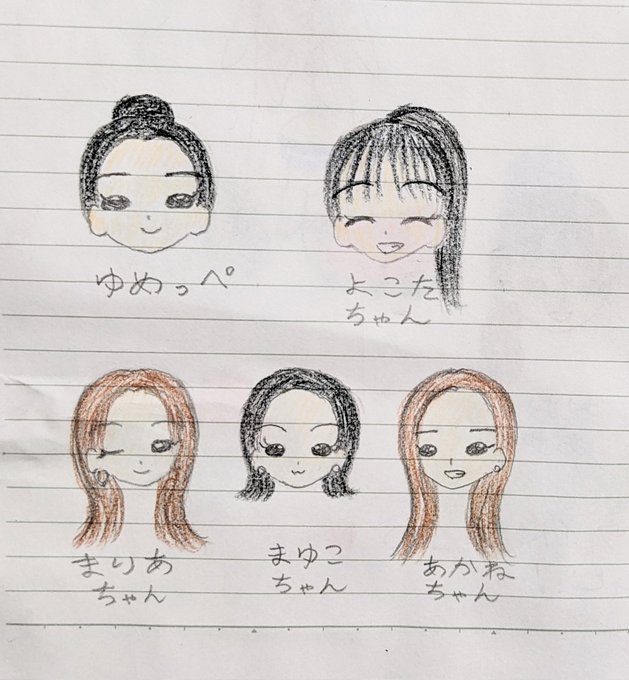 ゆめっぺ
よこた
ちゃん
まりあ
ちゃん
まゆこ
ちゃん
あかね
ちゃん